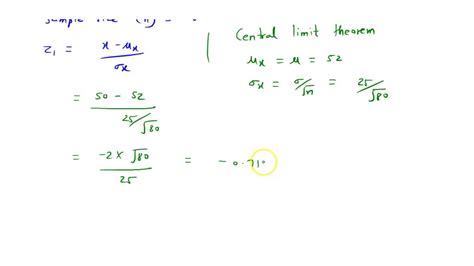 sample size (n) =
z₁ = x - μx / σx
= 50 - 52 / 25/√80
= -2 × √80 / 25 = - 0.71
Central limit theorem
μx = μ = 52
σx = σ/√n = 25/√80